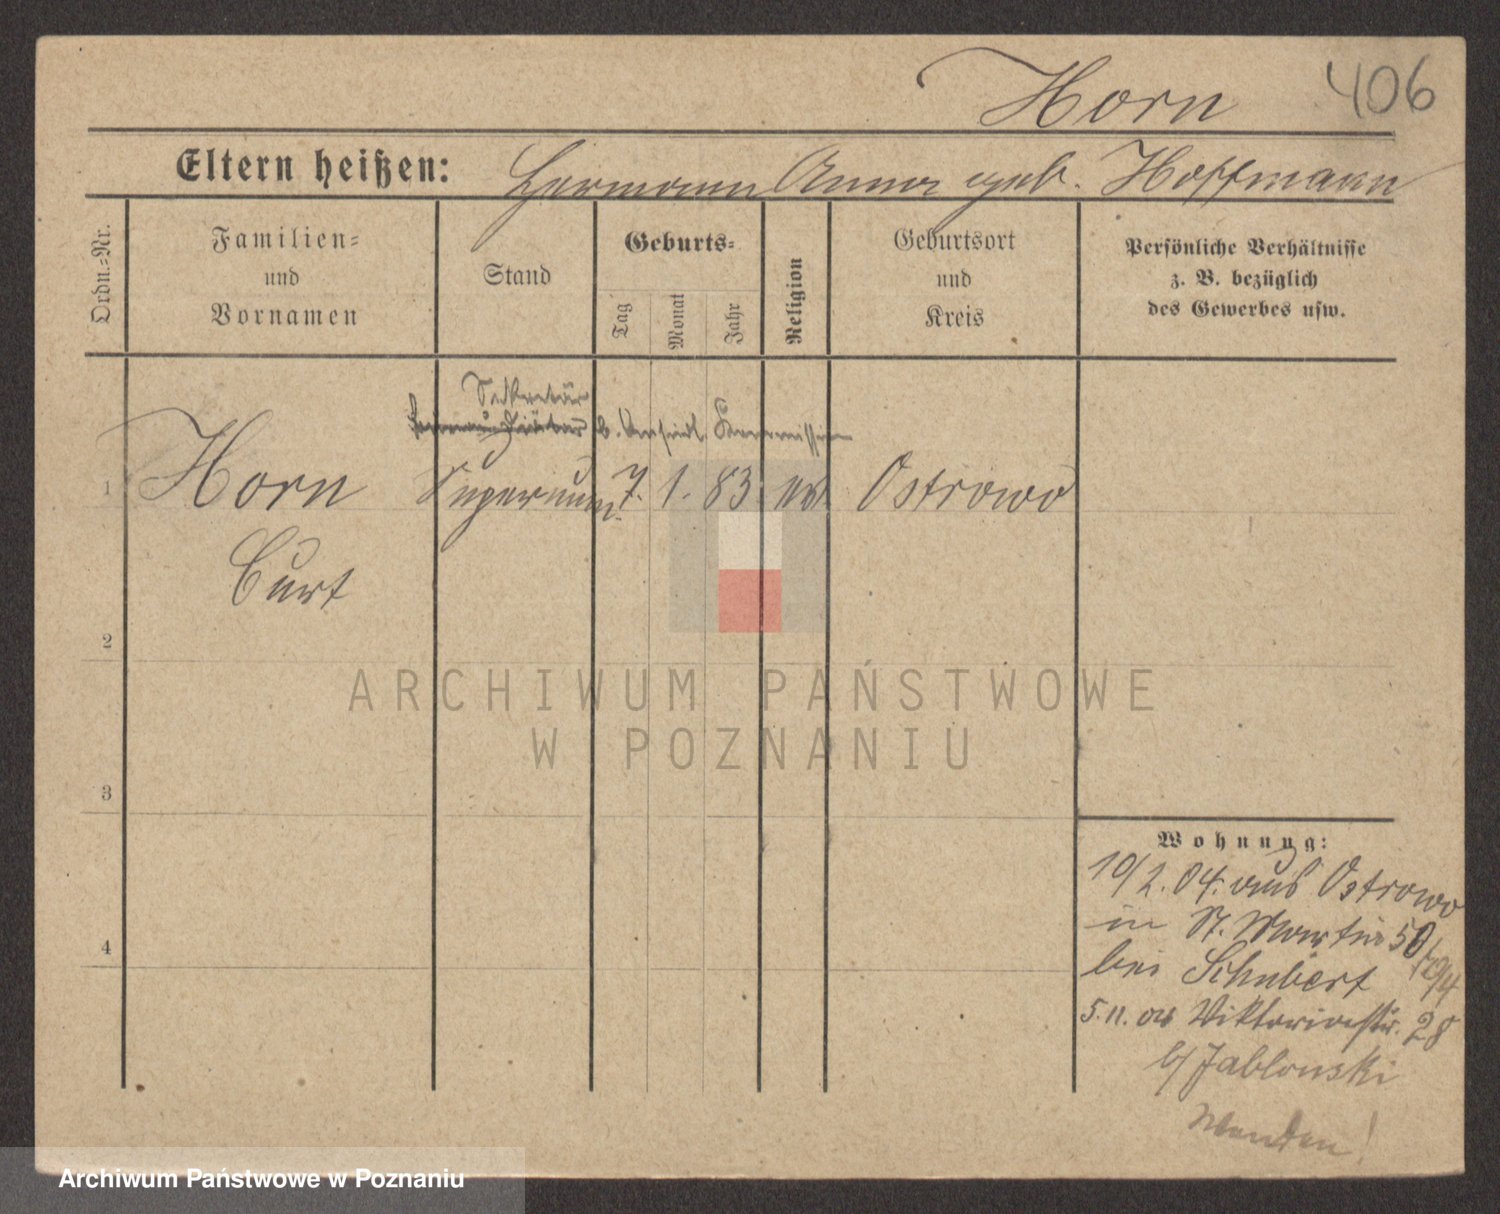 Horn 406
Eltern heißen: Hermann Anna geb. Hoffmann
Ordn.-Nr.
Familien-
und
Vornamen
Stand
Geburts-
Tag
Monat
Jahr
Religion
Geburtsort
und
Kreis
Persönliche Verhältnisse
z. B. bezüglich
des Gewerbes usw.
Sekretär
b. Ansiedl. Kommission
1 Horn Supernum. 7. 1. 83. ev. Ostrowo
Curt
2
3
4
Wohnung:
10/2. 04. aus Ostrowo
in St. Martin 50
bei Schubert
5.11. 04 Viktoriastr. 28
b/ Jablonski
Wenden!
ARCHIWUM PAŃSTWOWE
W POZNANIU
Archiwum Państwowe w Poznaniu